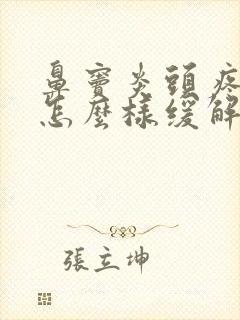 鼻竇炎頭疼
怎麼樣緩解
張立坤